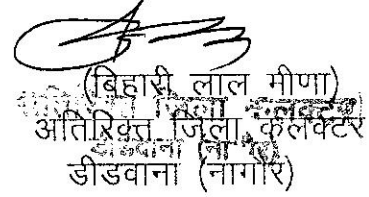 (बिहारी लाल मीणा)
अतिरिक्त जिला कलक्टर
डीडवाना (नागौर)